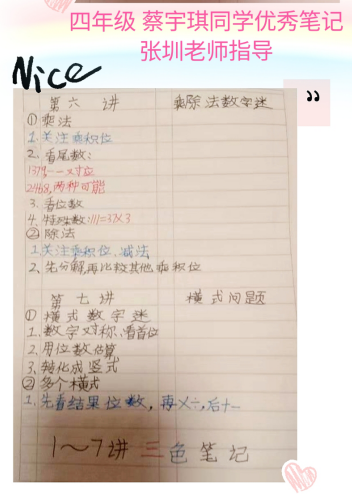 四年级 蔡宇琪同学优秀笔记
张圳老师指导
Nice
”
第六讲 乘除法数字迷
①乘法
1.关注乘积位
2.看尾数:
1379一一对应
2468,两种可能
3.看位数
4.特殊数:111=37×3
②除法
1.关注乘积位、减法
2、先分解,再比较其他乘积位
第七讲 横式问题
①横式数字迷
1.数字对称、看首位
2.用位数估算
3、转化成竖式
②多个横式
1.先看结果位数,再×÷,后+-
1～7讲 三色笔记